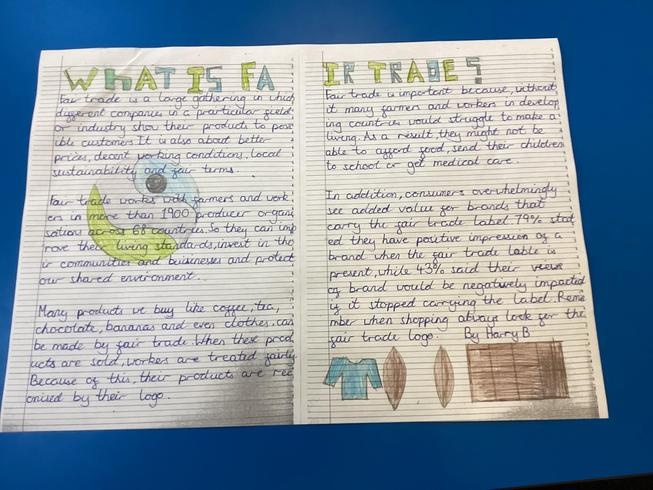 WHAT IS FA
Fair trade is a large gathering in which
different companies in a prarticular field
or industry show their products to poss
ible customers. It is also about better
prices, decent working conditions, local
sustainability and fair terms.
Fair trade works with farmers and work
ers in more than 1900 producer organi
sations across 68 countries. So they can imp
rove their living standards, invest in the
ir communities and buisinesses and protect
our shared environment.
Many products we buy like coffee, tea,
chocolate, bananas and even clothes, can
be made by fair trade. When these prod
ucts are sold, workers are treated fairly.
Because of this, their products are rec
onised by their logo.
IR TRADE?
Fair trade is important because, without
it many farmers and workers in develop
ing countries would struggle to make a
living. As a result, they might not be
able to afford food, send their children
to school or get medical care.
In addition, consumers overwhelmingly
see added value for brands that
carry the fair trade label 79% stat
ed they have positive impression of a
brand when the fair trade lable is
present, while 43% said their views
of brand would be negatively impacted
if it stopped carrying the label. Reme
mber when shopping always look for the
fair trade logo. By Harry B